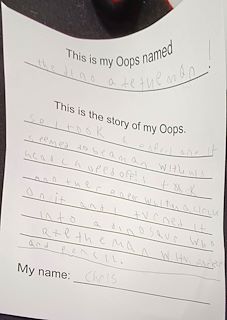 This is my Oops named
the dino atetheman!
This is the story of my Oops.
so I took
seemed to be a man with his
head chopped off! I took
another paper with a circle
on it and I turned it
into a dinosaur who
ate the man with
and pencil.
My name: Chris